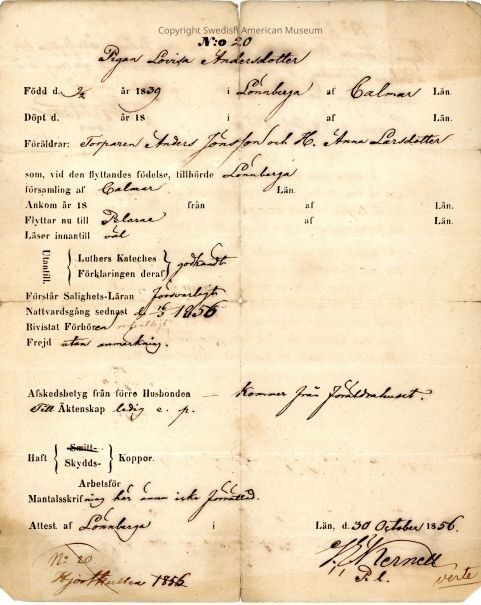 Copyright Swedish American Museum
N:o 20
Pigan Lovisa Andersdotter
Född d. 2/2 år 1839 i Lönnberga af Calmar Län.
Döpt d. år 18 i af Län.
Föräldrar: Torparen Anders Jönsson och H. Anna Larsdotter
som, vid den flyttandes födelse, tillhörde Lönnberga
församling af Calmar Län.
Ankom år 18 från af Län.
Flyttar nu till Pelarne af Län.
Läser innantill väl
Utantill. Luthers Kateches
Förklaringen deraf godkändt
Förstår Salighets-Läran försvarligt
Nattvardsgång sednast d. 16/5 1856
Bivistat Förhören ordentligt
Frejd utan anmärkning.
Afskedsbetyg från förre Husbonden — Kommer från Föräldrahuset.
Till Äktenskap ledig e. p.
Haft Smitt-
Skydds- Koppor.
Arbetsför
Mantalsskrifning här ännu icke förrättad.
Attest. af Lönnberga i Län, d. 30 October 1856.
Kernell
P. l.
verte
No 20
1856